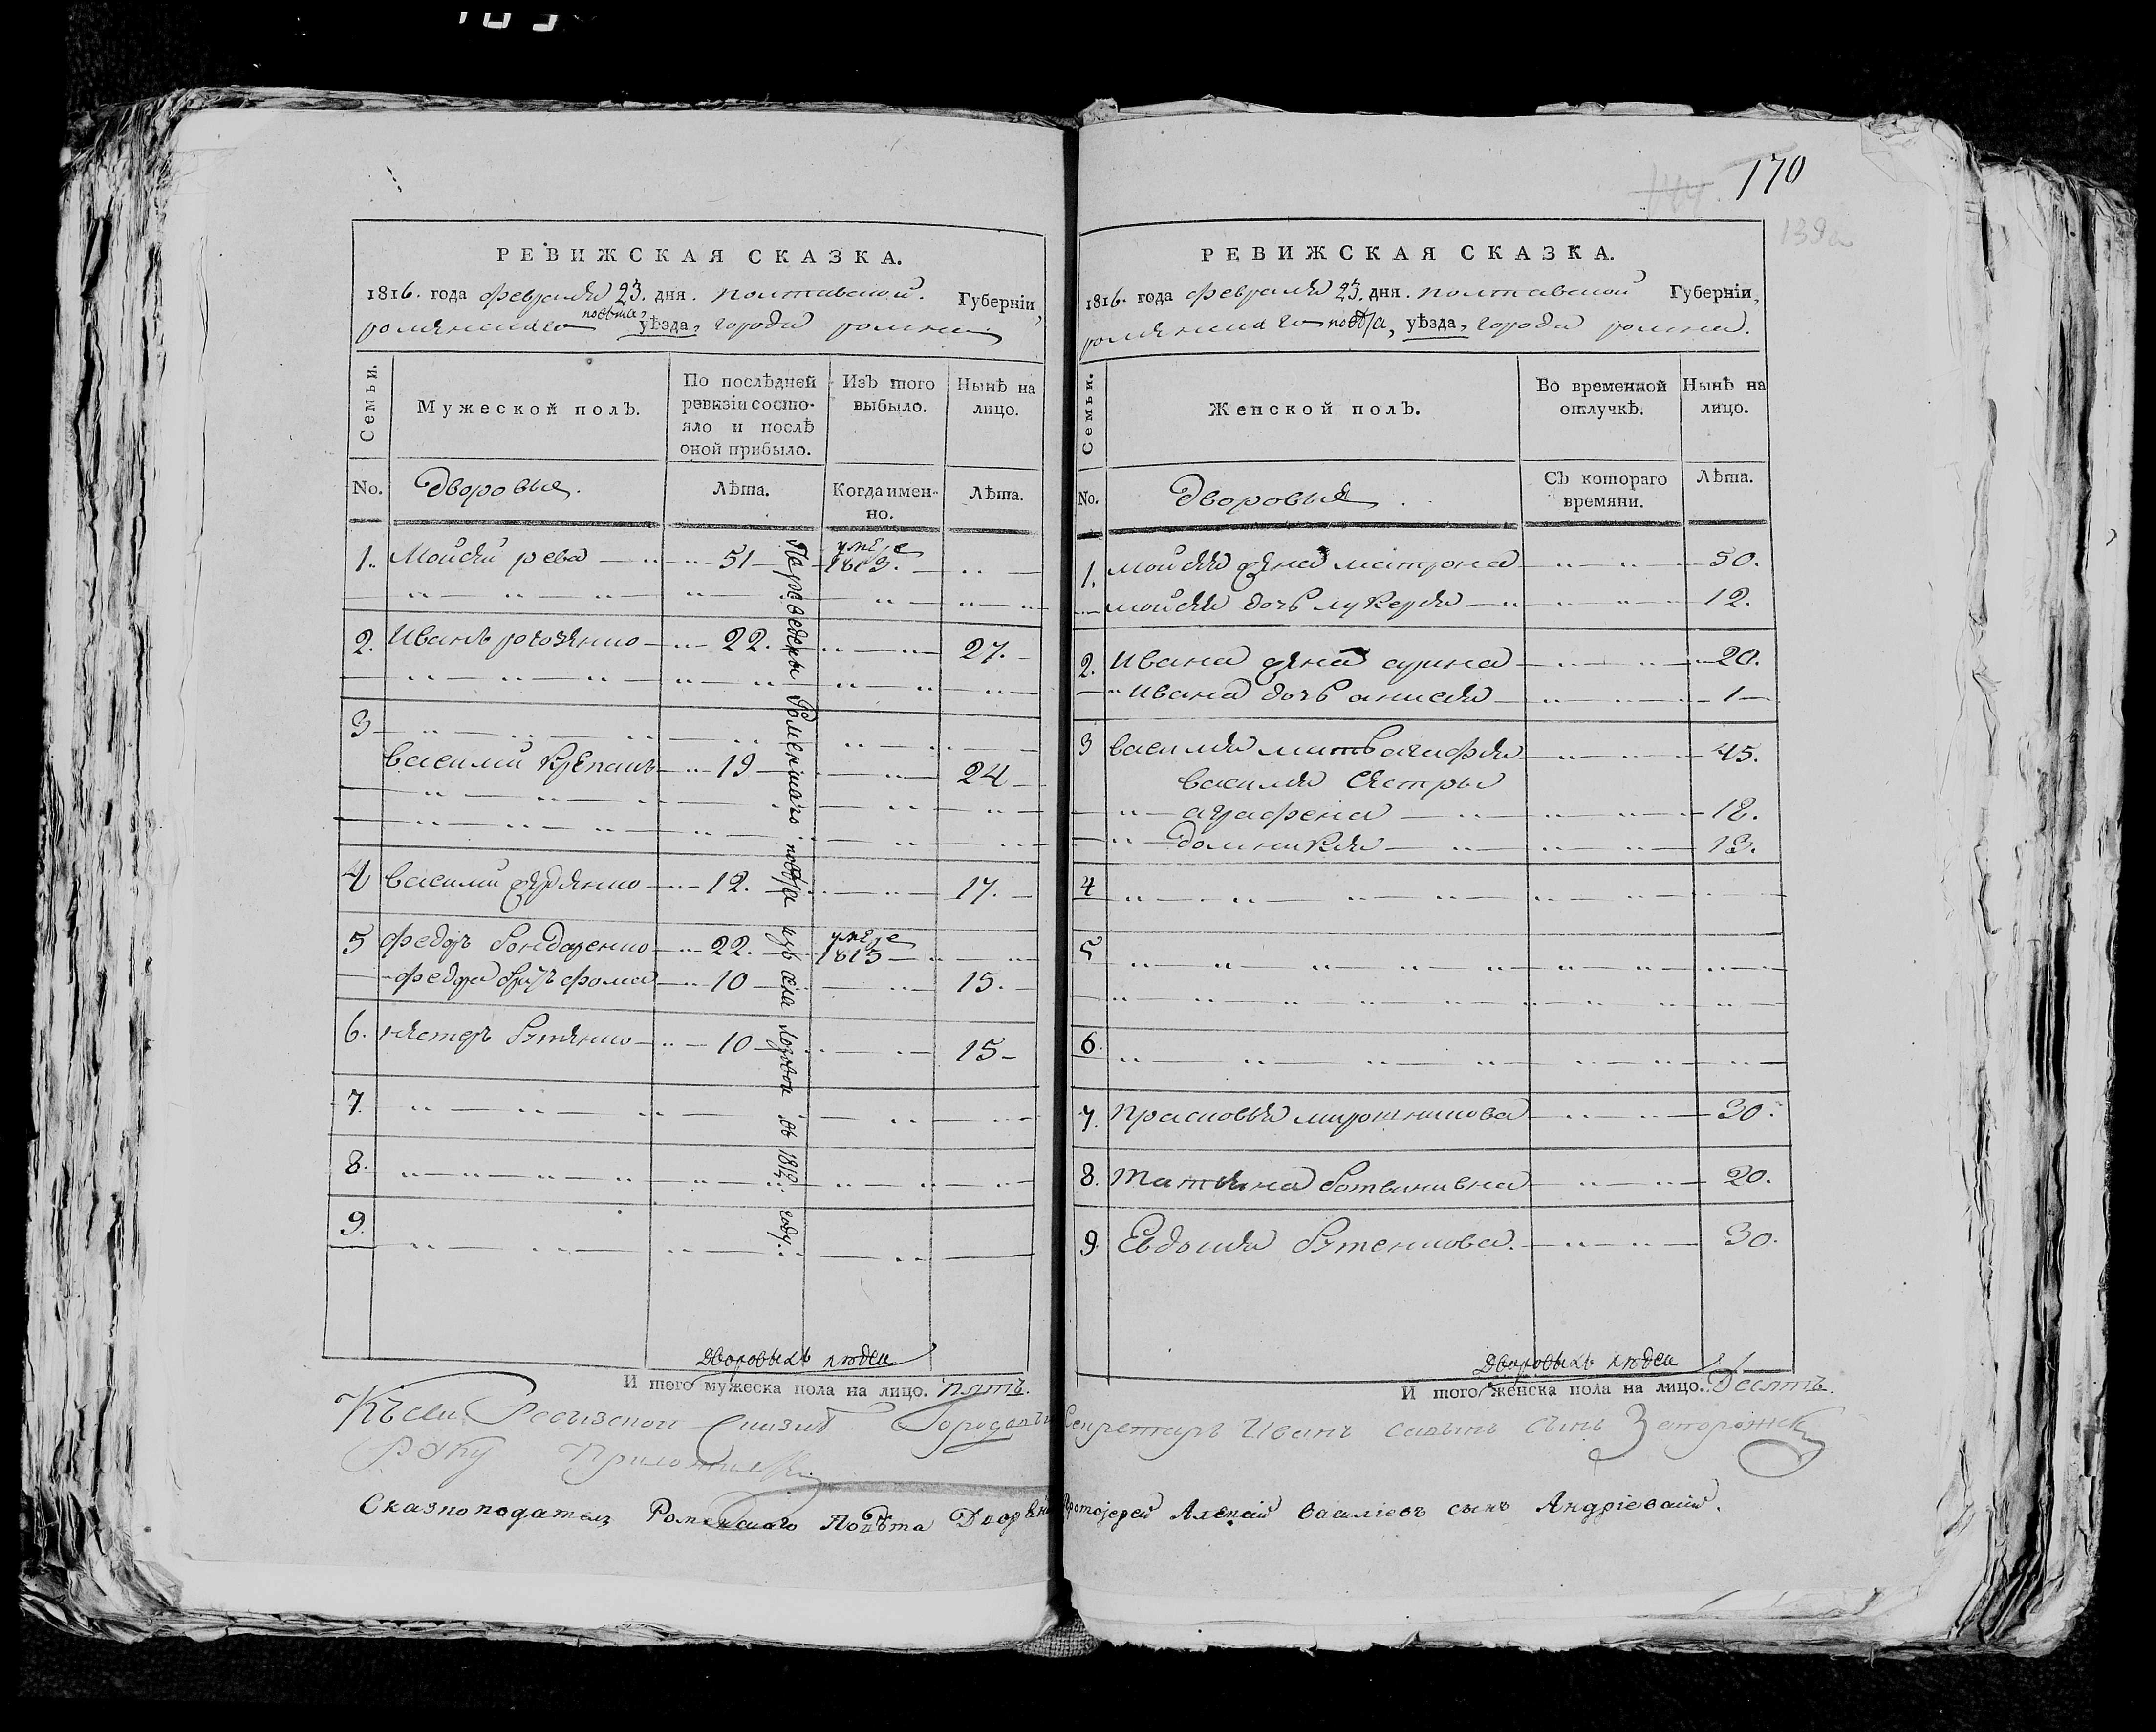 170
РЕВИЖСКАЯ СКАЗКА.
1816. года февраля 23. дня. полтавской. Губернїи,
повѣта,
роменскаго уѣзда, города ромна
Семьи.
Мужеской полъ.
По послѣдней ревизїи состояло и послѣ оной прибыло.
Изъ того выбыло.
Нынѣ на лицо.
No.
Дворовые.
Лѣта.
Когда именно.
Лѣта.
1. Мойсей рева 51 умре 1813.
2. Иванъ 22. 27.
3 василий 19 24
4 василий 12. 17.
5 федоръ бондаренко 22. умре 1815
федора братъ фома 10 15.
6. нестеръ 10 15
7.
8.
9.
Переведены Роменскаго повѣта изъ села Лозовои въ 1812: году:
Дворовыхъ людей
И того мужеска пола на лицо. пять.
РЕВИЖСКАЯ СКАЗКА.
1816. года февраля 23. дня. полтавской Губернїи,
роменскаго повѣта, уѣзда, города ромна.
Семьи.
Женской полъ.
Во временной отлучкѣ.
Нынѣ на лицо.
No.
Дворовые
Съ котораго времяни.
Лѣта.
1. мойсея жена матрона 50.
мойсея дочь лукерья 12.
2. Ивана жена 20.
Ивана дочь анисья 1
3 василия мать агафия 45.
василия сестры
аграфена 18.
домникия 13.
4
5
6.
7. прасковья мирошникова 30.
8. татьяна 20.
9. Евдокия 30.
Дворовыхъ людей
И того женска пола на лицо. Десять.
Къ сей Ревизской сказкѣ секретарь Иванъ сынъ
Руку Приложилъ
Сказкоподатель Роменскаго Повѣта Протоїерей Алексїй Василїевъ сынъ Андрїевскїй.